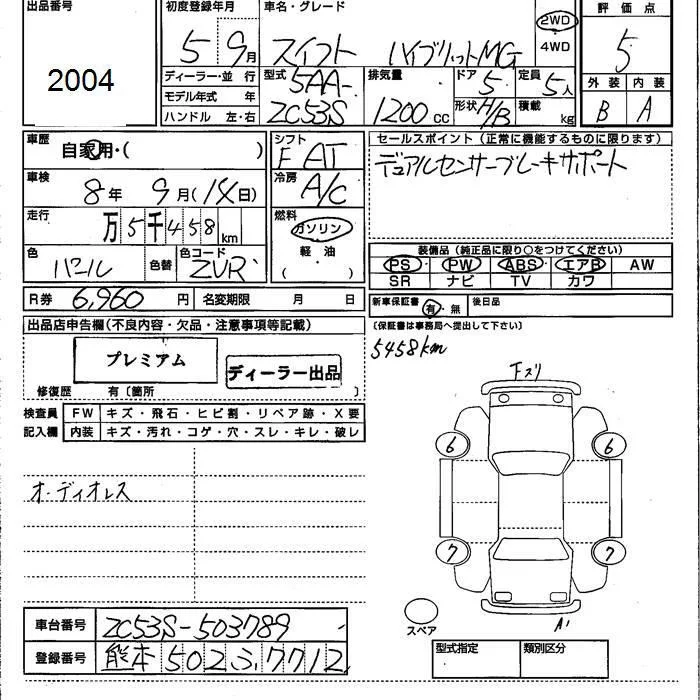 出品番号 初度登録年月 車名・グレード 評価点
2004 5 9月 スイフト ハイブリットMG 2WD 4WD 5
ディーラー・並行 型式 排気量 ドア 定員 外装 内装
モデル年式 年 5AA- ZC53S 1200cc 5 5人 B A
ハンドル 左・右 形状 H/B 積載 kg
車歴 自家用・( ) シフト F AT セールスポイント(正常に機能するものに限ります)
デュアルセンサーブレーキサポート
車検 8年 9月(14日) 冷房 A/C
走行 万5千458km 燃料 ガソリン
軽・油
( )
色 パール 色替 色コード ZVR
装備品(純正品に限り○をつけてください)
PS・ PW・ ABS・ エアB・ AW
SR ナビ TV カワ
R券 6,960円 名変期限 月 日 新車保証書 有・無 後日品
(保証書は事務局へ提出して下さい)
5458km
出品店申告欄(不良内容・欠品・注意事項等記載)
プレミアム ディーラー出品
修復歴 有〔箇所 〕
検査員 FW キズ・飛石・ヒビ割・リペア跡・X要
記入欄 内装 キズ・汚れ・コゲ・穴・スレ・キレ・破レ
下ズリ
6 6
オーディオレス
7 7
A1
スペア
車台番号 ZC53S-503789
登録番号 熊本 502 ふ 7712
型式指定 類別区分